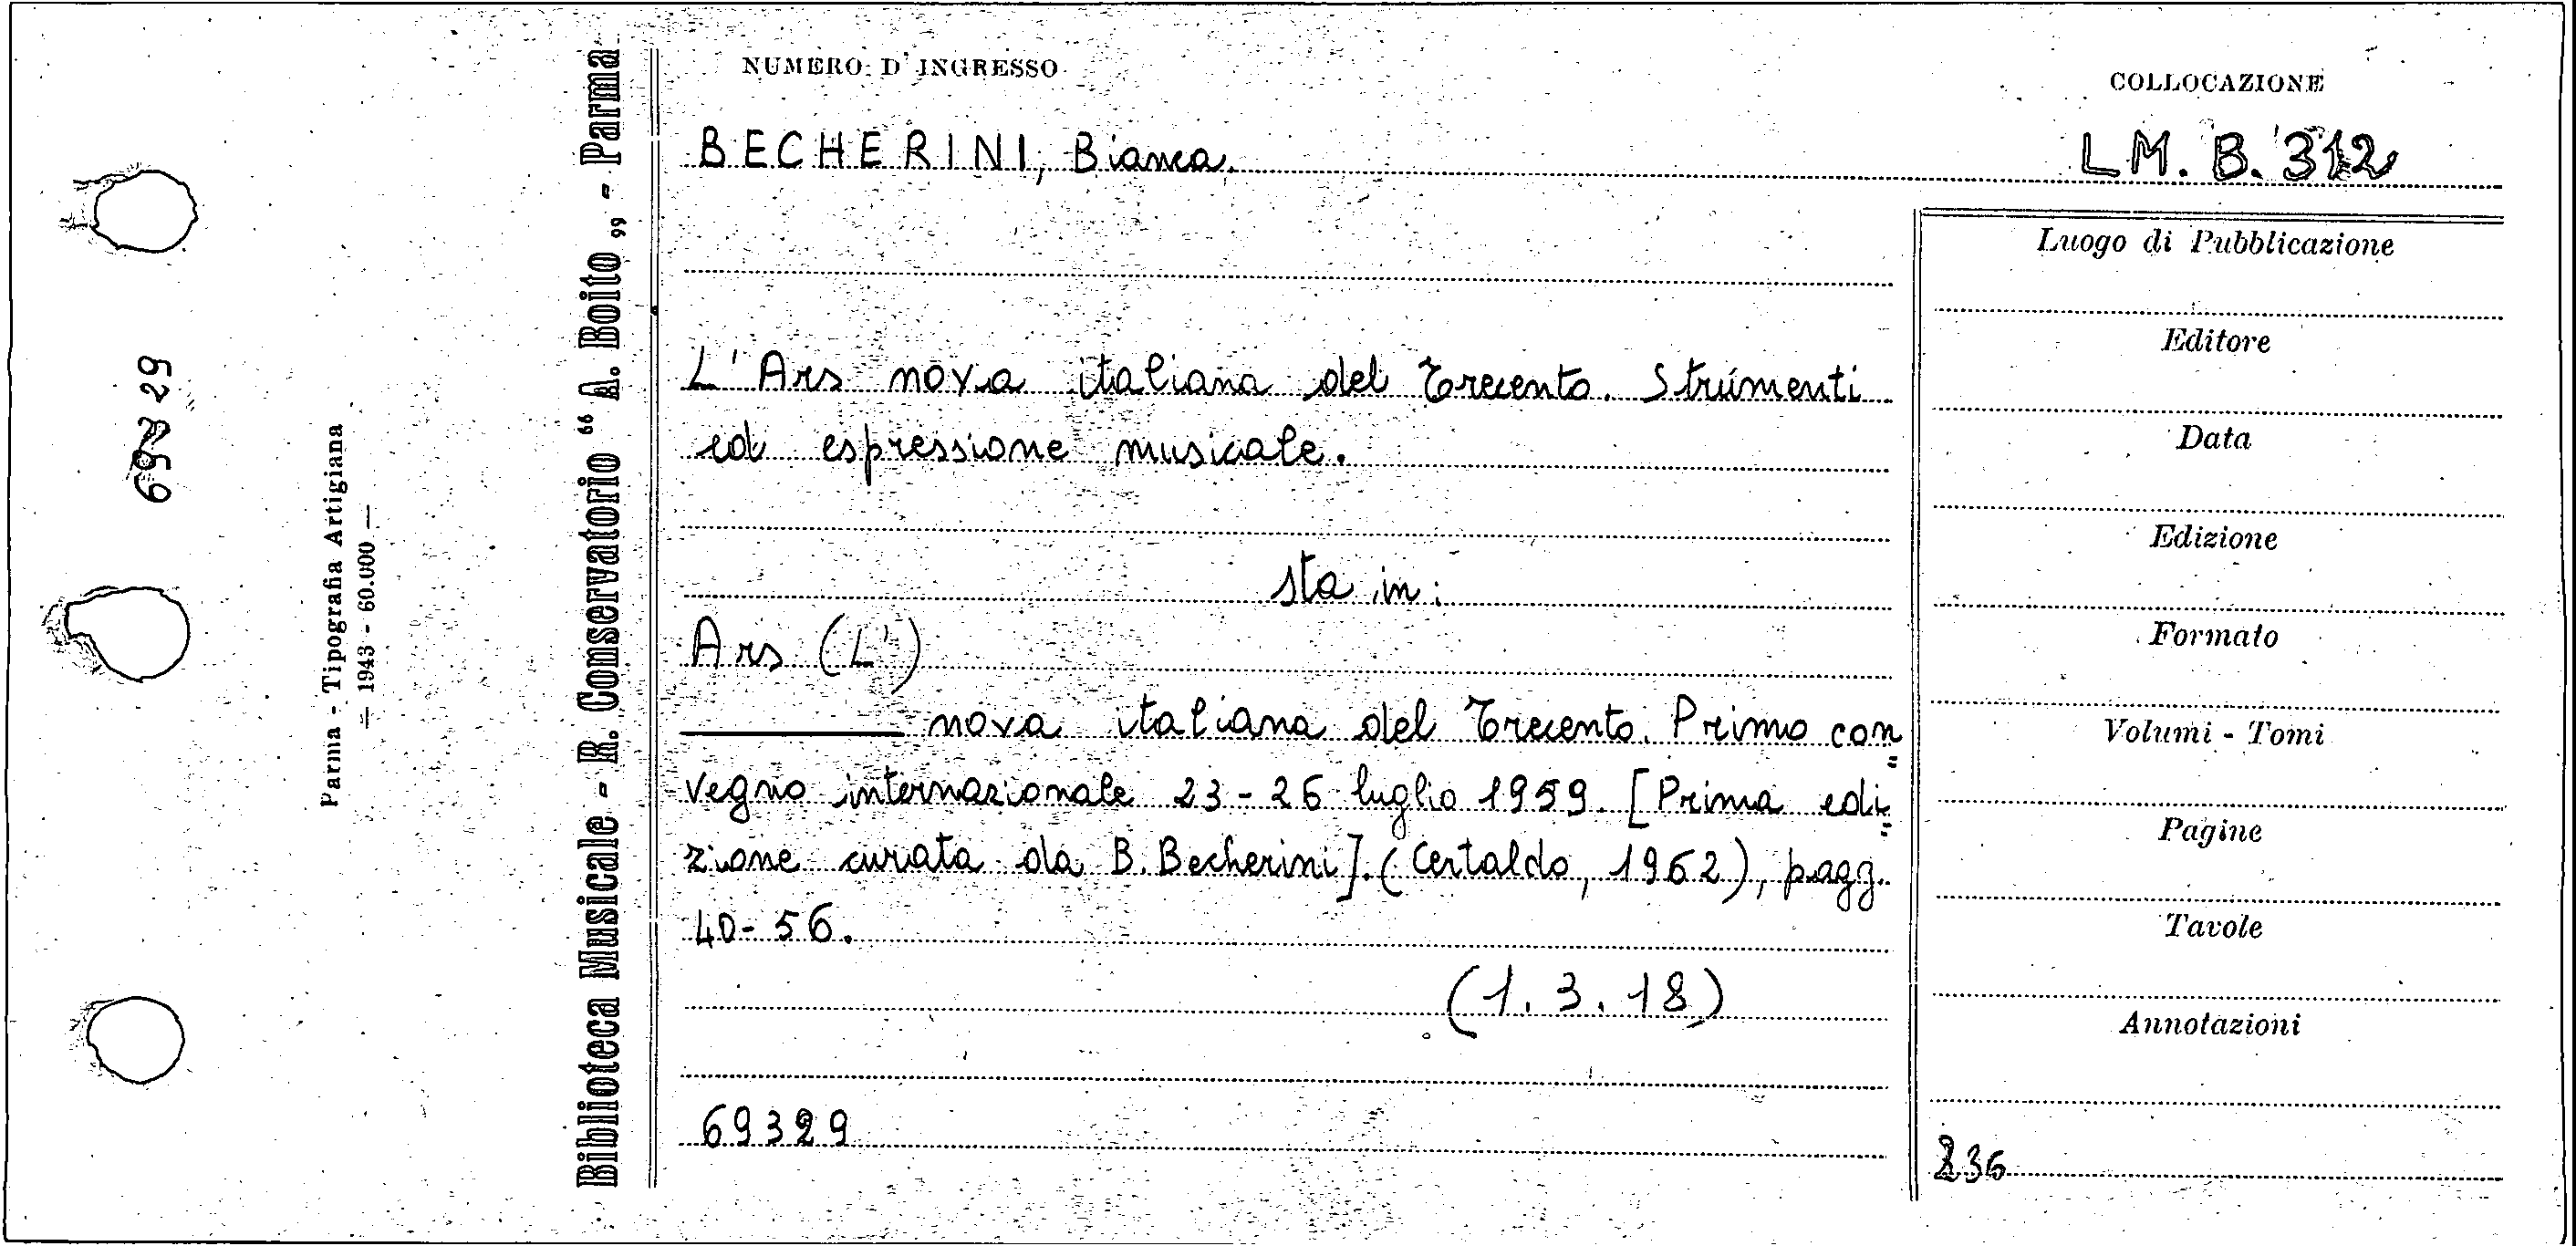 NUMERO D'INGRESSO
COLLOCAZIONE
BECHERINI, Bianca.
LM. B. 312
L'Ars nova italiana del Trecento. Strumenti
ed espressione musicale.
sta in:
Ars (L')
nova italiana del Trecento. Primo con
vegno internazionale 23-26 luglio 1959. [Prima edi
zione curata da B. Becherini]. (Certaldo, 1962), pagg.
40-56.
(1.3.18)
69329
Luogo di Pubblicazione
Editore
Data
Edizione
Formato
Volumi - Tomi
Pagine
Tavole
Annotazioni
236
Biblioteca Musicale - R. Conservatorio “A. Boito„ - Parma
Parma - Tipografia Artigiana
— 1943 - 60.000 —